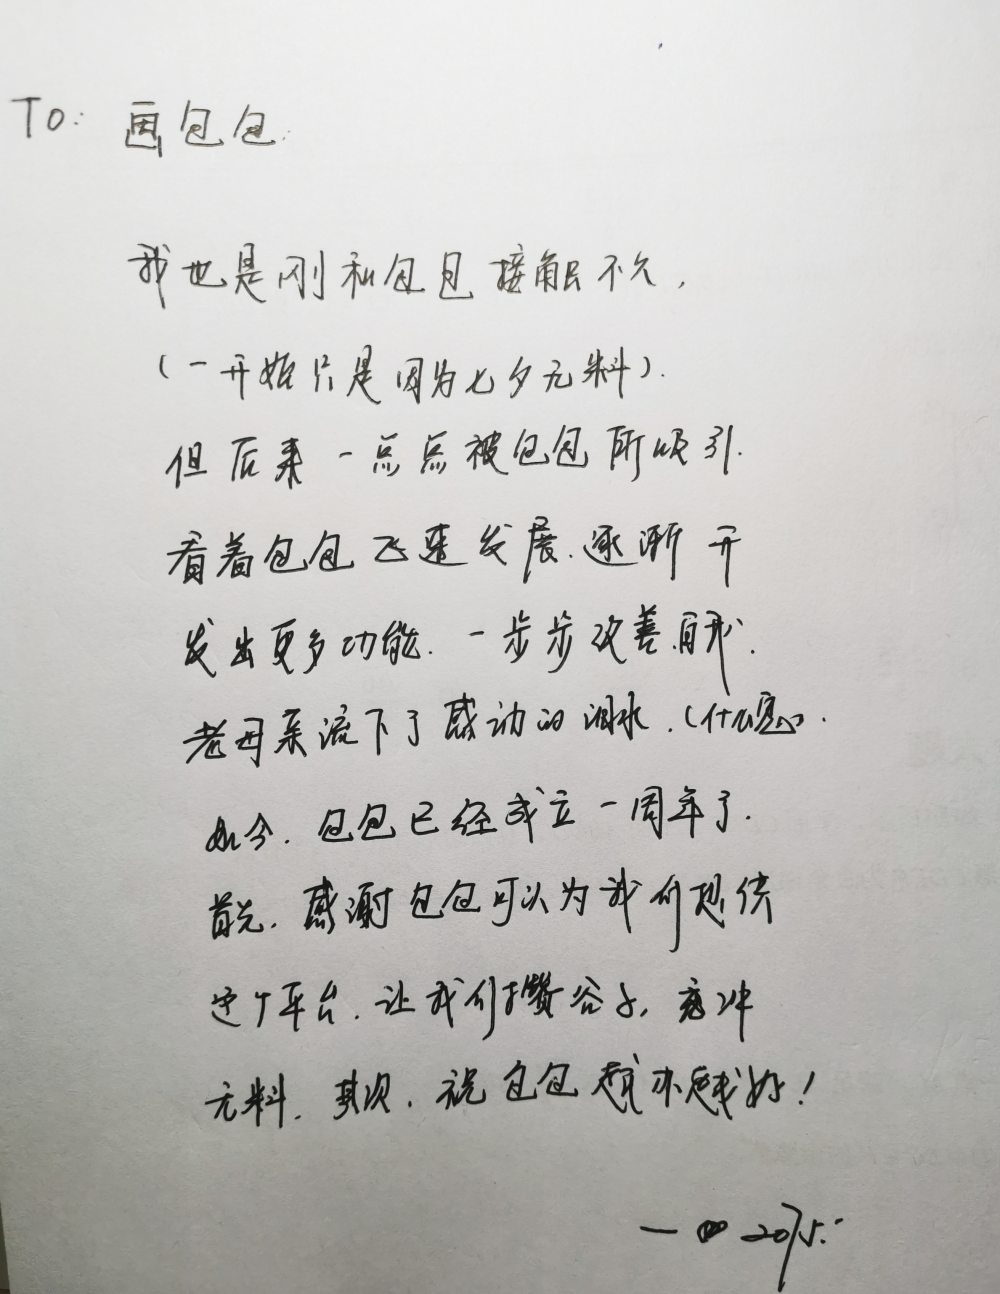 To: 画包包
我也是刚和包包接触不久,
(一开始只是因为七夕无料).
但后来一点点被包包所吸引.
看着包包飞速发展.逐渐开
发出更多功能.一步步改善自我.
老母亲流下了感动的泪水.(什么鬼).
如今.包包已经成立一周年了.
首先.感谢包包可以为我们提供
这个平台.让我们攒谷子,
无料.其次.祝包包越办越好!